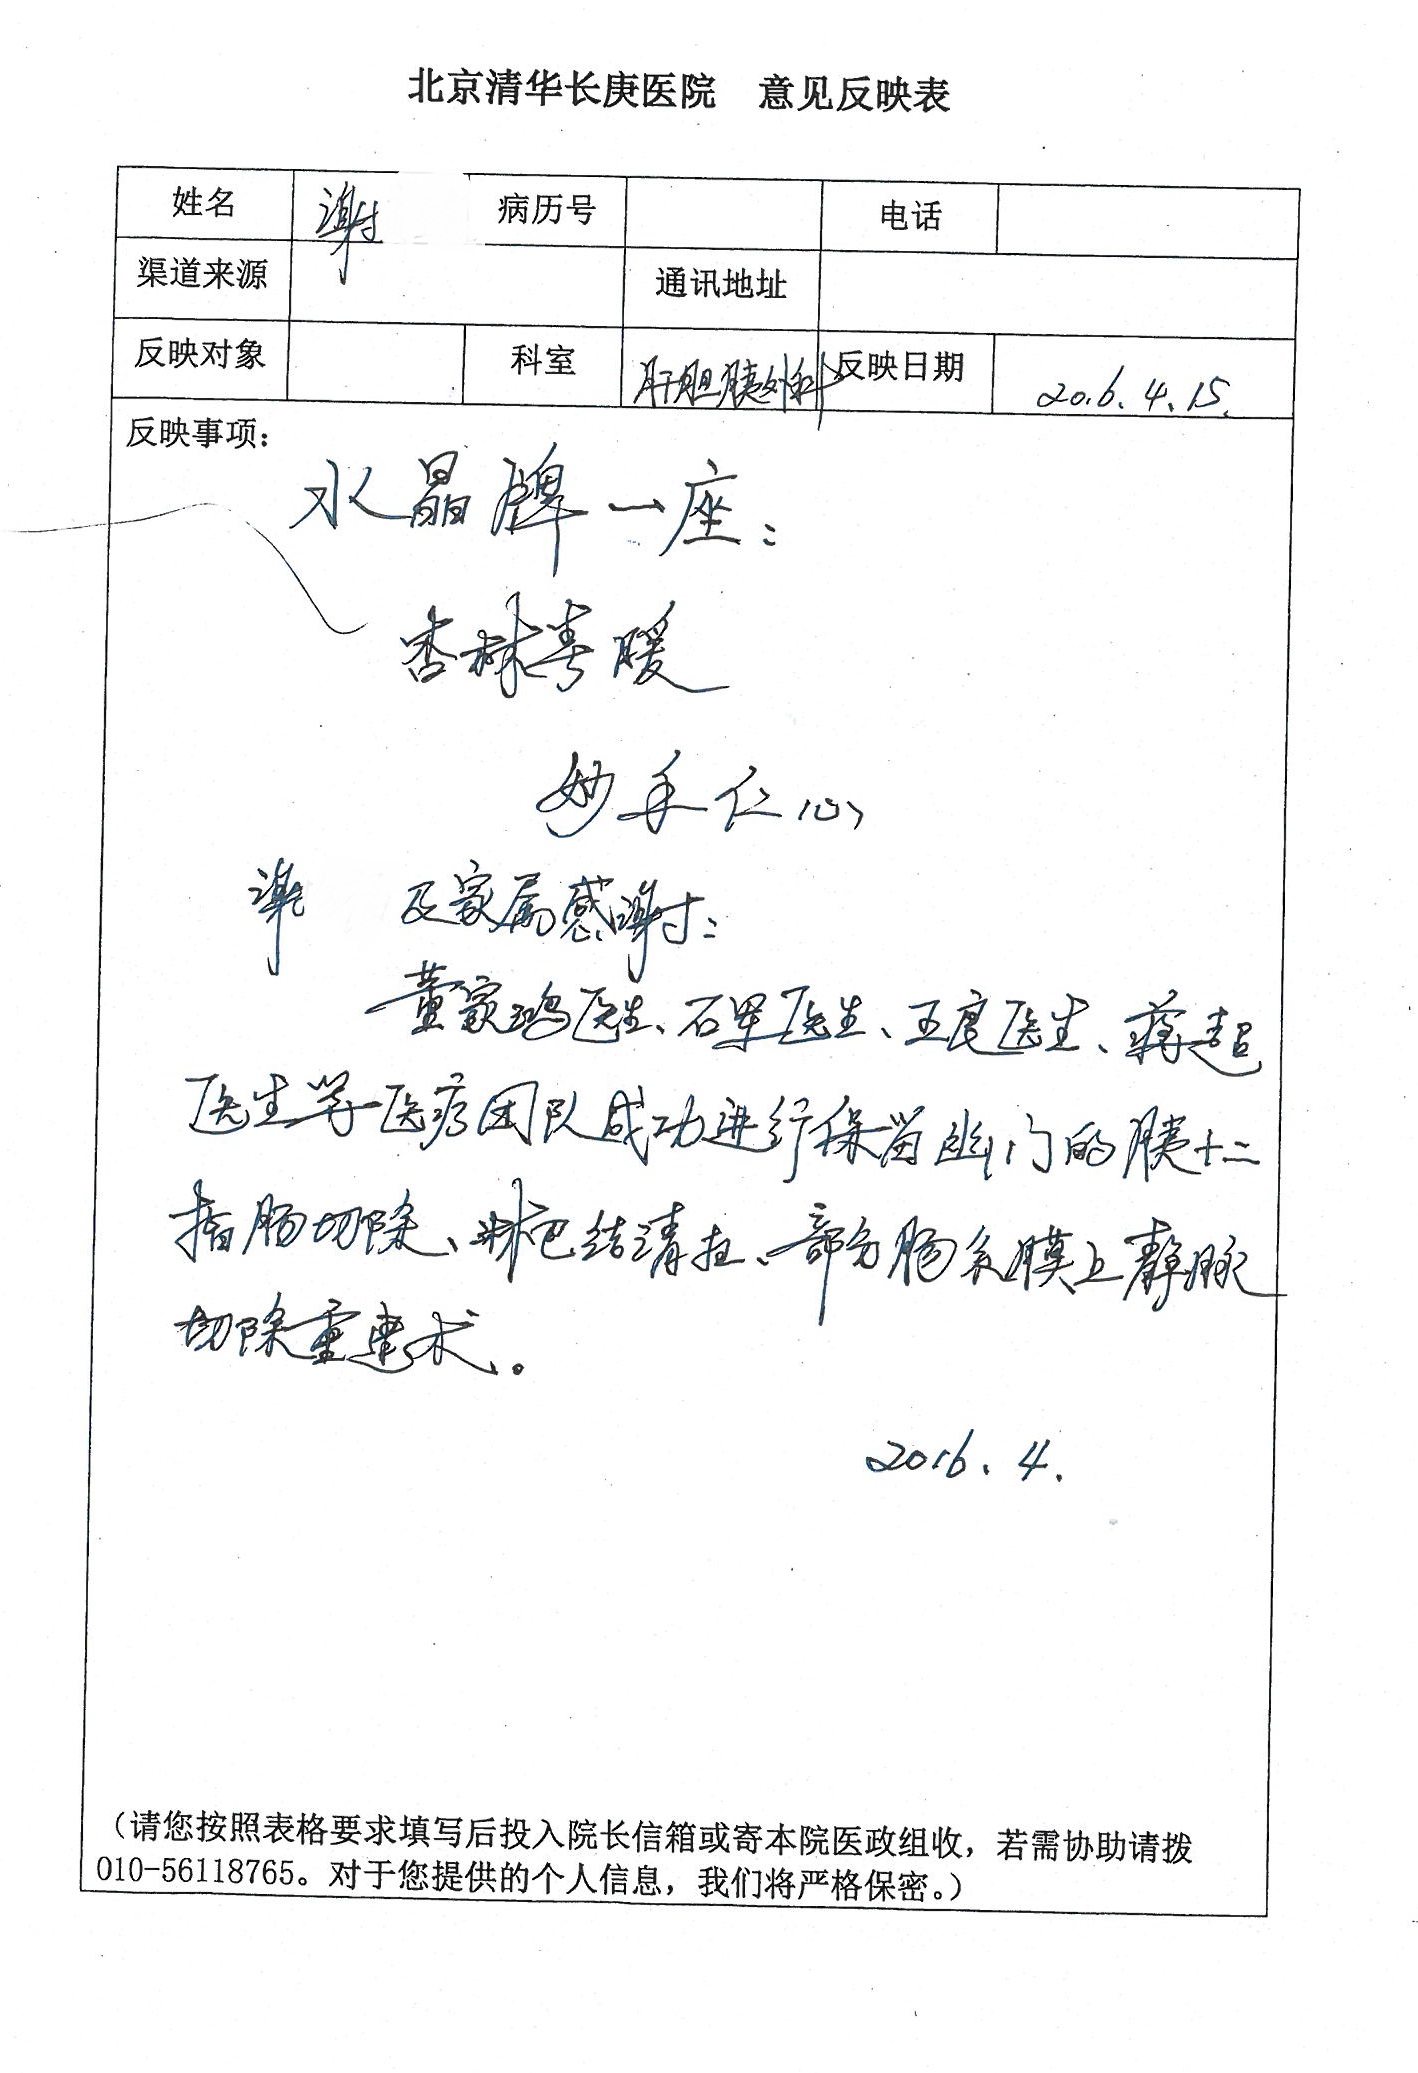 北京清华长庚医院 意见反映表
姓名 谢 病历号 电话
渠道来源 通讯地址
反映对象 科室 肝胆胰外科 反映日期 2016.4.15.
反映事项：
水晶牌一座：
杏林春暖
妙手仁心
谢 及家属感谢：
董家鸿医生、石军医生、王亮医生、蒋超
医生等医疗团队成功进行保留幽门的胰十二
指肠切除、淋巴结清扫、部分肠系膜上静脉
切除重建术。
2016.4.
（请您按照表格要求填写后投入院长信箱或寄本院医政组收，若需协助请拨
010-56118765。对于您提供的个人信息，我们将严格保密。）